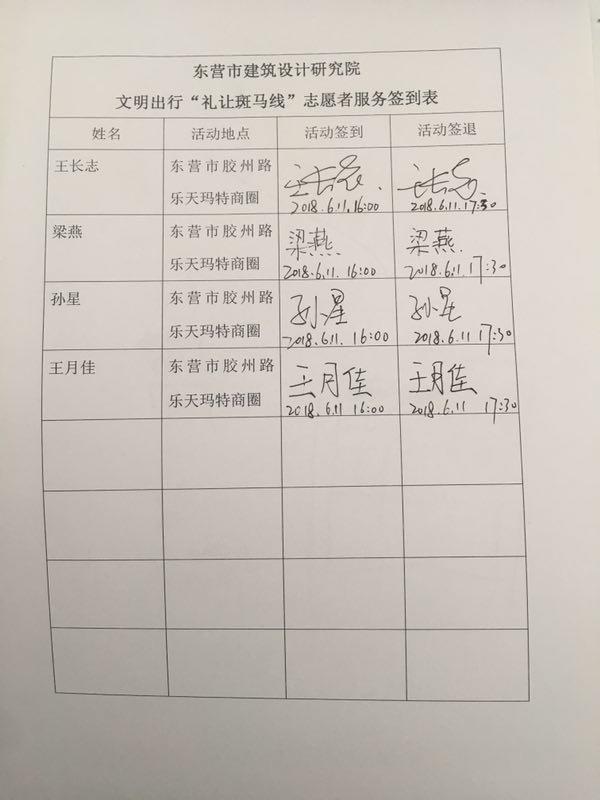 东营市建筑设计研究院
文明出行“礼让斑马线”志愿者服务签到表
姓名 活动地点 活动签到 活动签退
王长志 东营市胶州路 王长志 王长志
乐天玛特商圈 2018.6.11.16:00 2018.6.11.17:30
梁燕 东营市胶州路 梁燕 梁燕
乐天玛特商圈 2018.6.11. 16:00 2018.6.11. 17:30
孙星 东营市胶州路 孙星 孙星
乐天玛特商圈 2018.6.11. 16:00 2018.6.11 17:30
王月佳 东营市胶州路 王月佳 王月佳
乐天玛特商圈 2018.6.11 16:00 2018.6.11 17:30